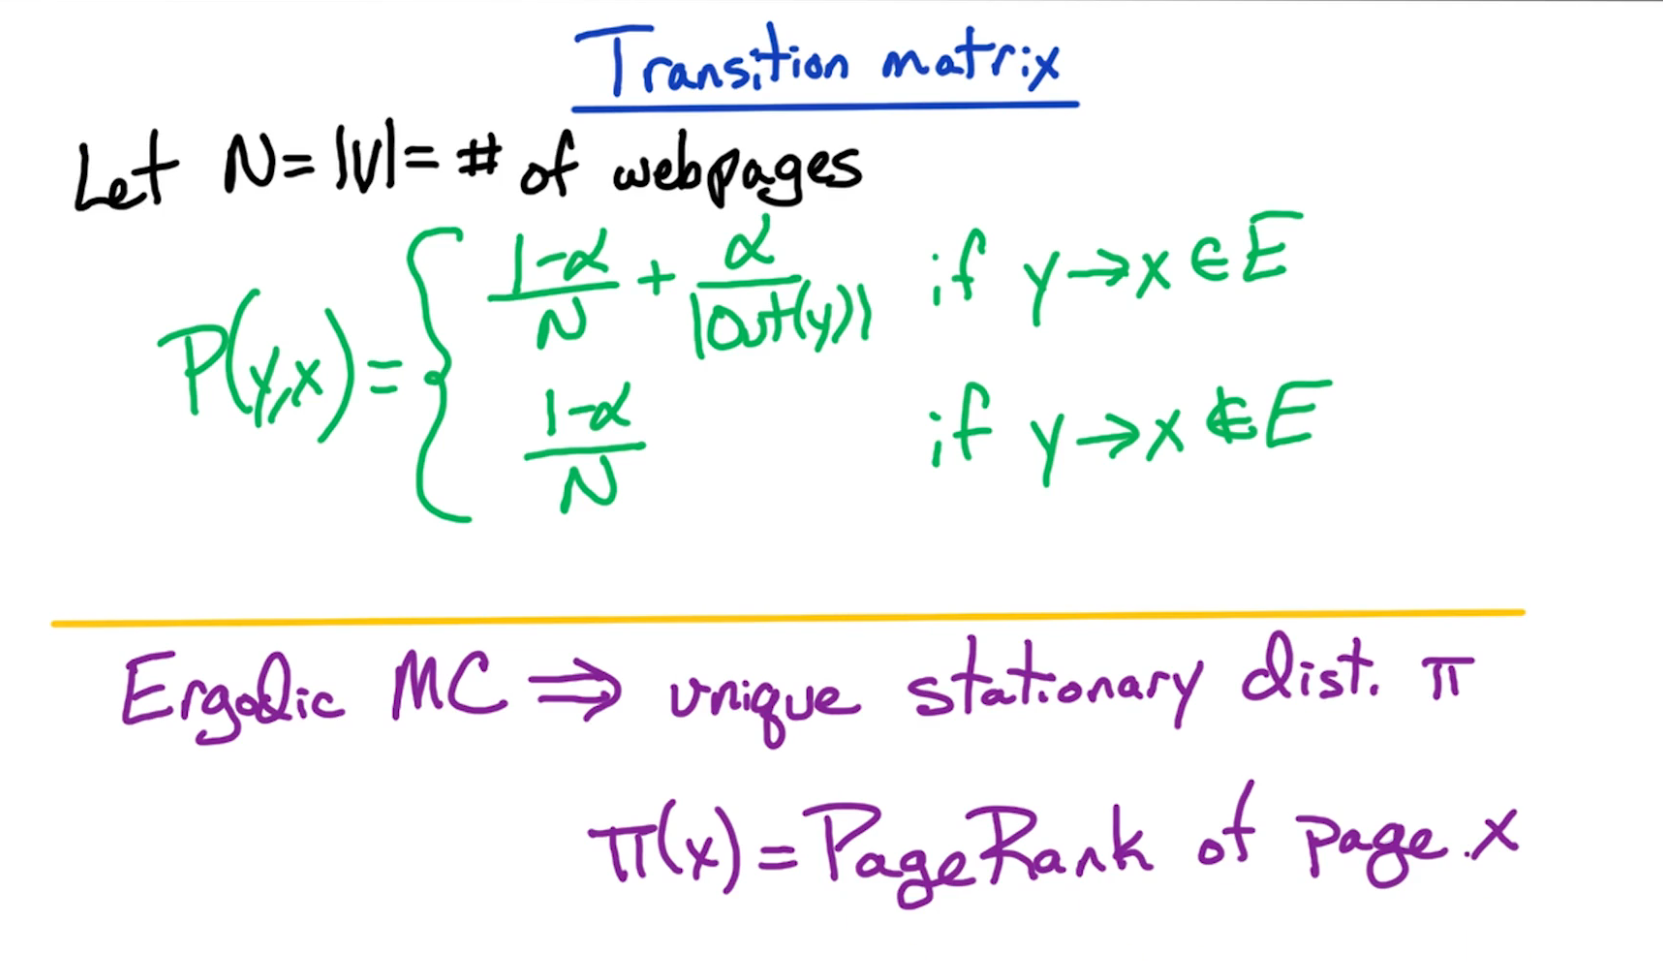 Transition matrix
Let N = |V| = # of webpages
P(y,x) = { (1-α)/N + α/|Out(y)| if y→x ∈ E
(1-α)/N if y→x ∉ E
Ergodic MC ⇒ unique stationary dist. π
π(x) = PageRank of page x